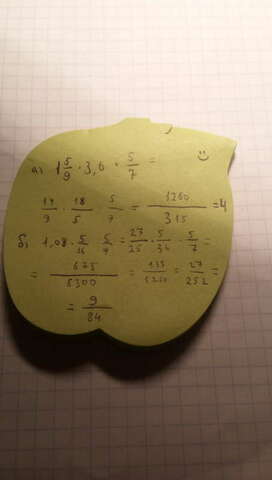 а) 1 5/9 · 3,6 · 5/7 =
14/9 · 18/5 · 5/7 = 1260/315 = 4
б) 1,08 · 5/36 · 5/7 = 27/25 · 5/36 · 5/7 =
= 675/6300 = 135/1260 = 27/252 =
= 9/84